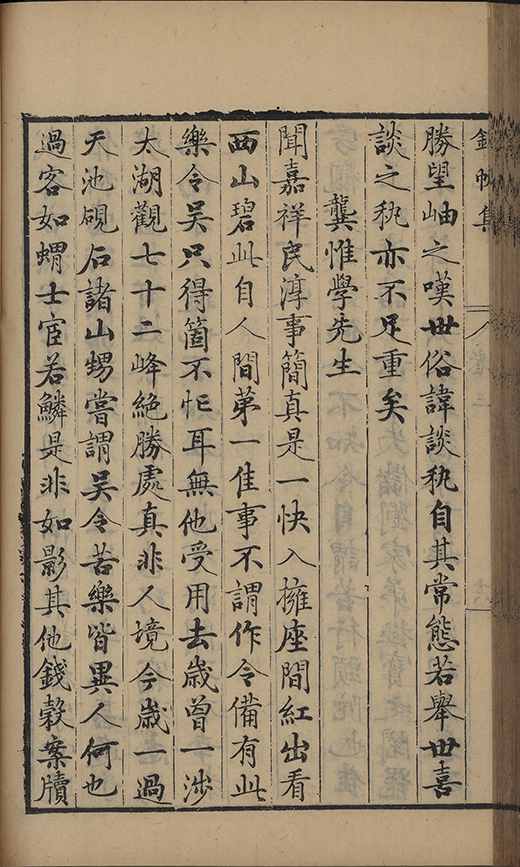 錦帆集
勝望岫之嘆世俗諱談秇自其常態若舉世喜
談之秇亦不足重矣
龔惟學先生
聞嘉祥民淳事簡真是一快入擁座間紅出看
西山碧此自人間第一佳事不謂作令備有此
樂令吳只得箇不忙耳無他受用去歲曾一涉
太湖觀七十二峰絶勝處真非人境今歲一過
天池硯石諸山甥嘗謂吳令苦樂皆異人何也
過客如蝟士宦若鱗是非如影其他錢穀案牘